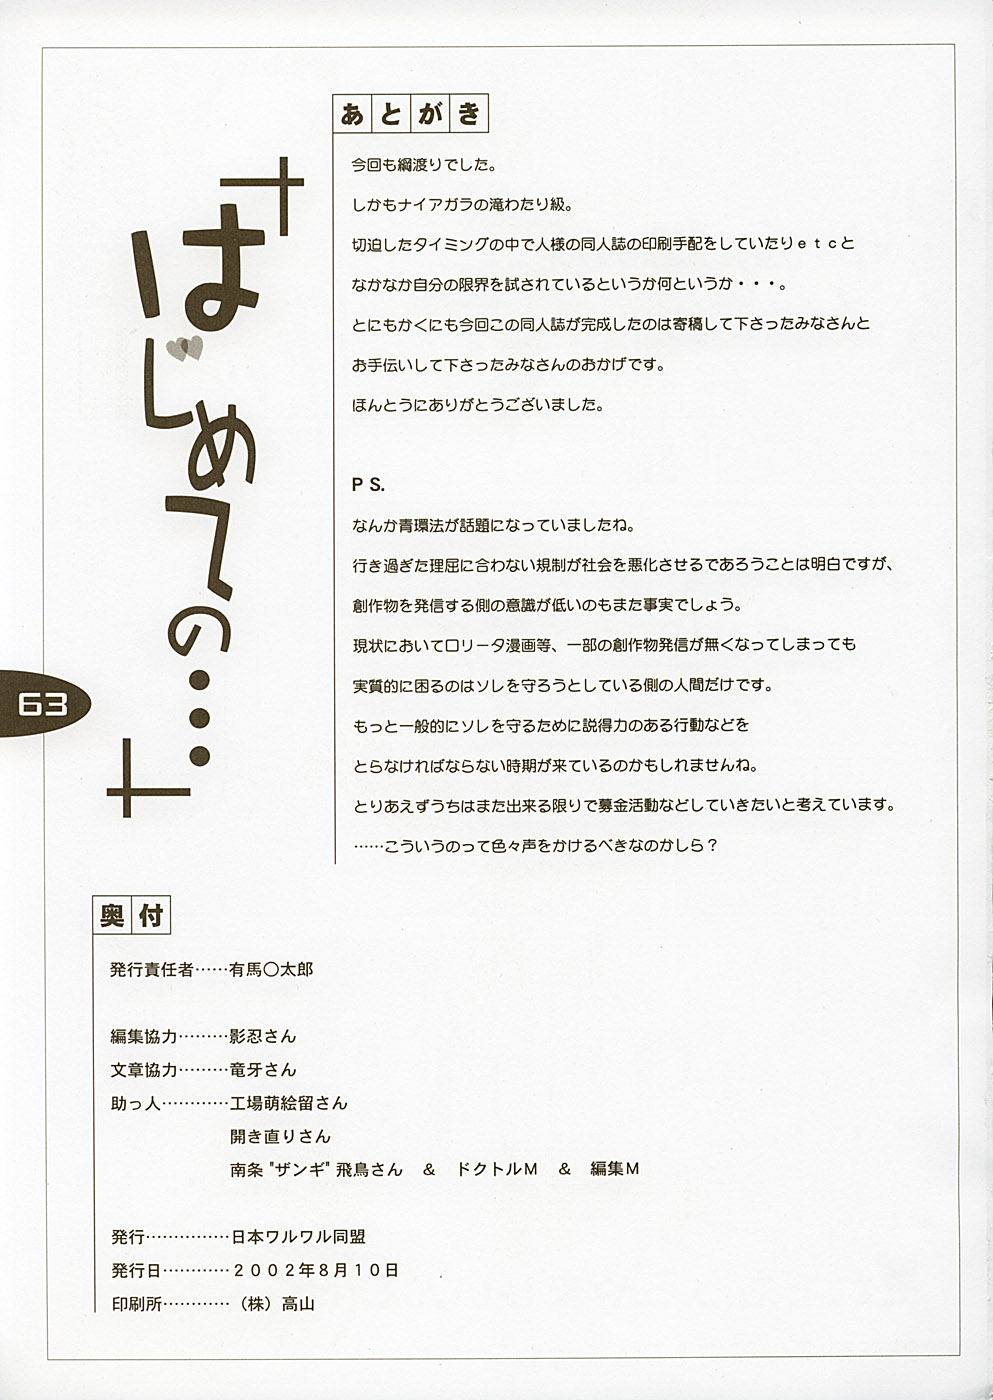 あとがき
今回も綱渡りでした。
しかもナイアガラの滝わたり級。
切迫したタイミングの中で人様の同人誌の印刷手配をしていたりｅｔｃと
なかなか自分の限界を試されているというか何というか・・・。
とにもかくにも今回この同人誌が完成したのは寄稿して下さったみなさんと
お手伝いして下さったみなさんのおかげです。
ほんとうにありがとうございました。
ＰＳ.
なんか青環法が話題になっていましたね。
行き過ぎた理屈に合わない規制が社会を悪化させるであろうことは明白ですが、
創作物を発信する側の意識が低いのもまた事実でしょう。
現状においてロリータ漫画等、一部の創作物発信が無くなってしまっても
実質的に困るのはソレを守ろうとしている側の人間だけです。
もっと一般的にソレを守るために説得力のある行動などを
とらなければならない時期が来ているのかもしれませんね。
とりあえずうちはまた出来る限りで募金活動などしていきたいと考えています。
……こういうのって色々声をかけるべきなのかしら？
はじめての…
63
奥付
発行責任者……有馬〇太郎
編集協力………影忍さん
文章協力………竜牙さん
助っ人…………工場萌絵留さん
開き直りさん
南条"ザンギ"飛鳥さん　＆　ドクトルＭ　＆　編集Ｍ
発行……………日本ワルワル同盟
発行日…………２００２年８月１０日
印刷所…………（株）高山